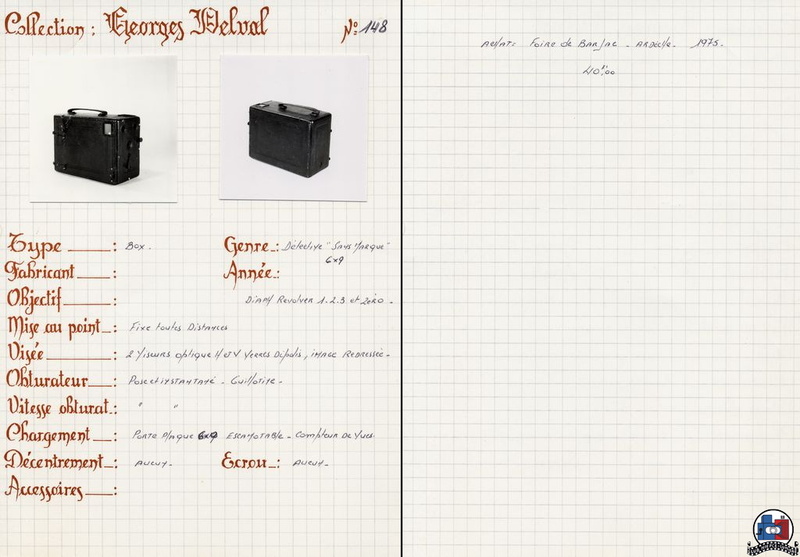 Collection : Georges Delval
N°: 148
Type : Box.
Genre : Détective "Sans Marque"
6x9
Fabricant :
Année :
Objectif : Diaph Revolver 1.2.3 et zéro.
Mise au point : Fixe toutes Distances
Visée : 2 Viseurs optique H et V Verres Dépolis, image Redressée.
Obturateur : Pose et instantané - Guillotine.
Vitesse obturat. : " "
Chargement : Porte Plaque 6x9 Escamotable - Compteur de Vues
Décentrement : Aucun.
Ecrou : Aucun.
Accessoires :
Achat : Foire de Barjac - Ardèche. 1975.
40F,00